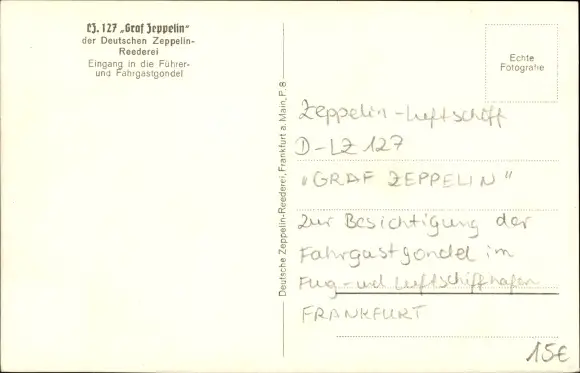 LZ. 127 „Graf Zeppelin“
der Deutschen Zeppelin-
Reederei
Eingang in die Führer-
und Fahrgastgondel
Deutsche Zeppelin-Reederei, Frankfurt a. Main, P. 8
Echte
Fotografie
Zeppelin-Luftschiff
D-LZ 127
"GRAF ZEPPELIN"
Zur Besichtigung der
Fahrgastgondel im
Flug- und Luftschiffhafen
FRANKFURT
15€